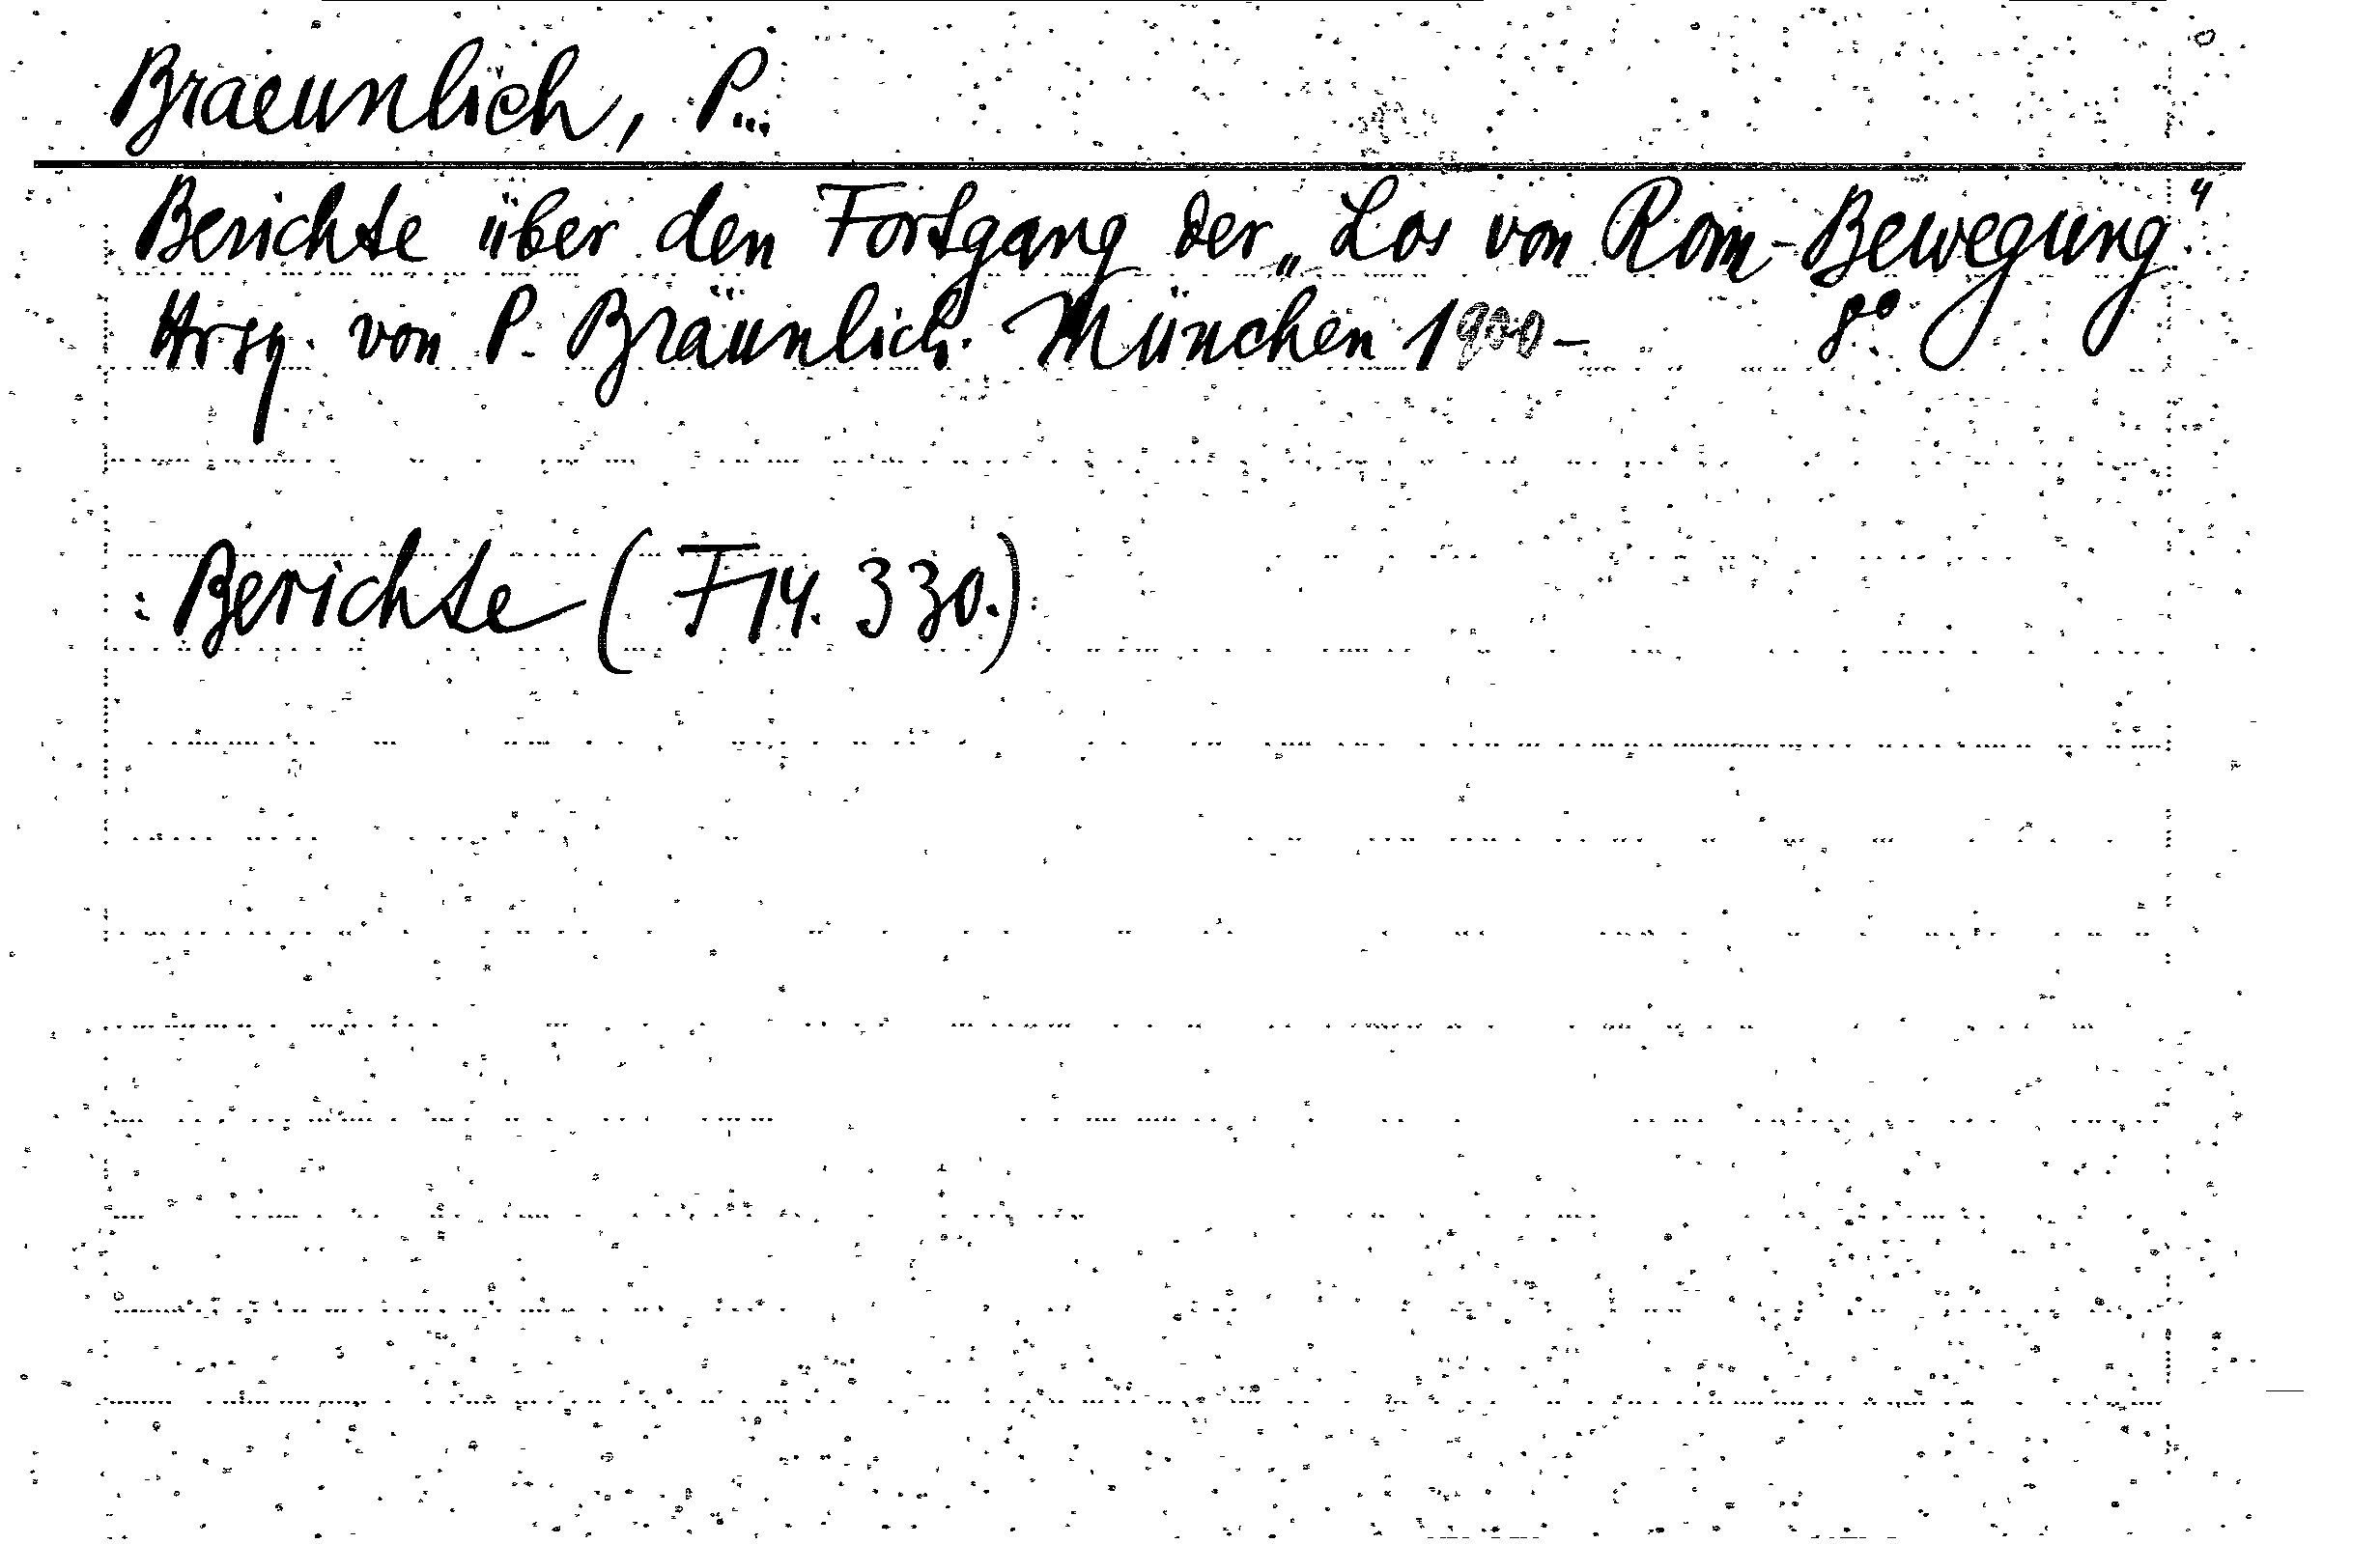 Braeunlich, P...
Berichte über den Fortgang der „Los von Rom-Bewegung."
Hrsg. von P. Bräunlich. München 1900- 8°
: Berichte (F14. 330.)